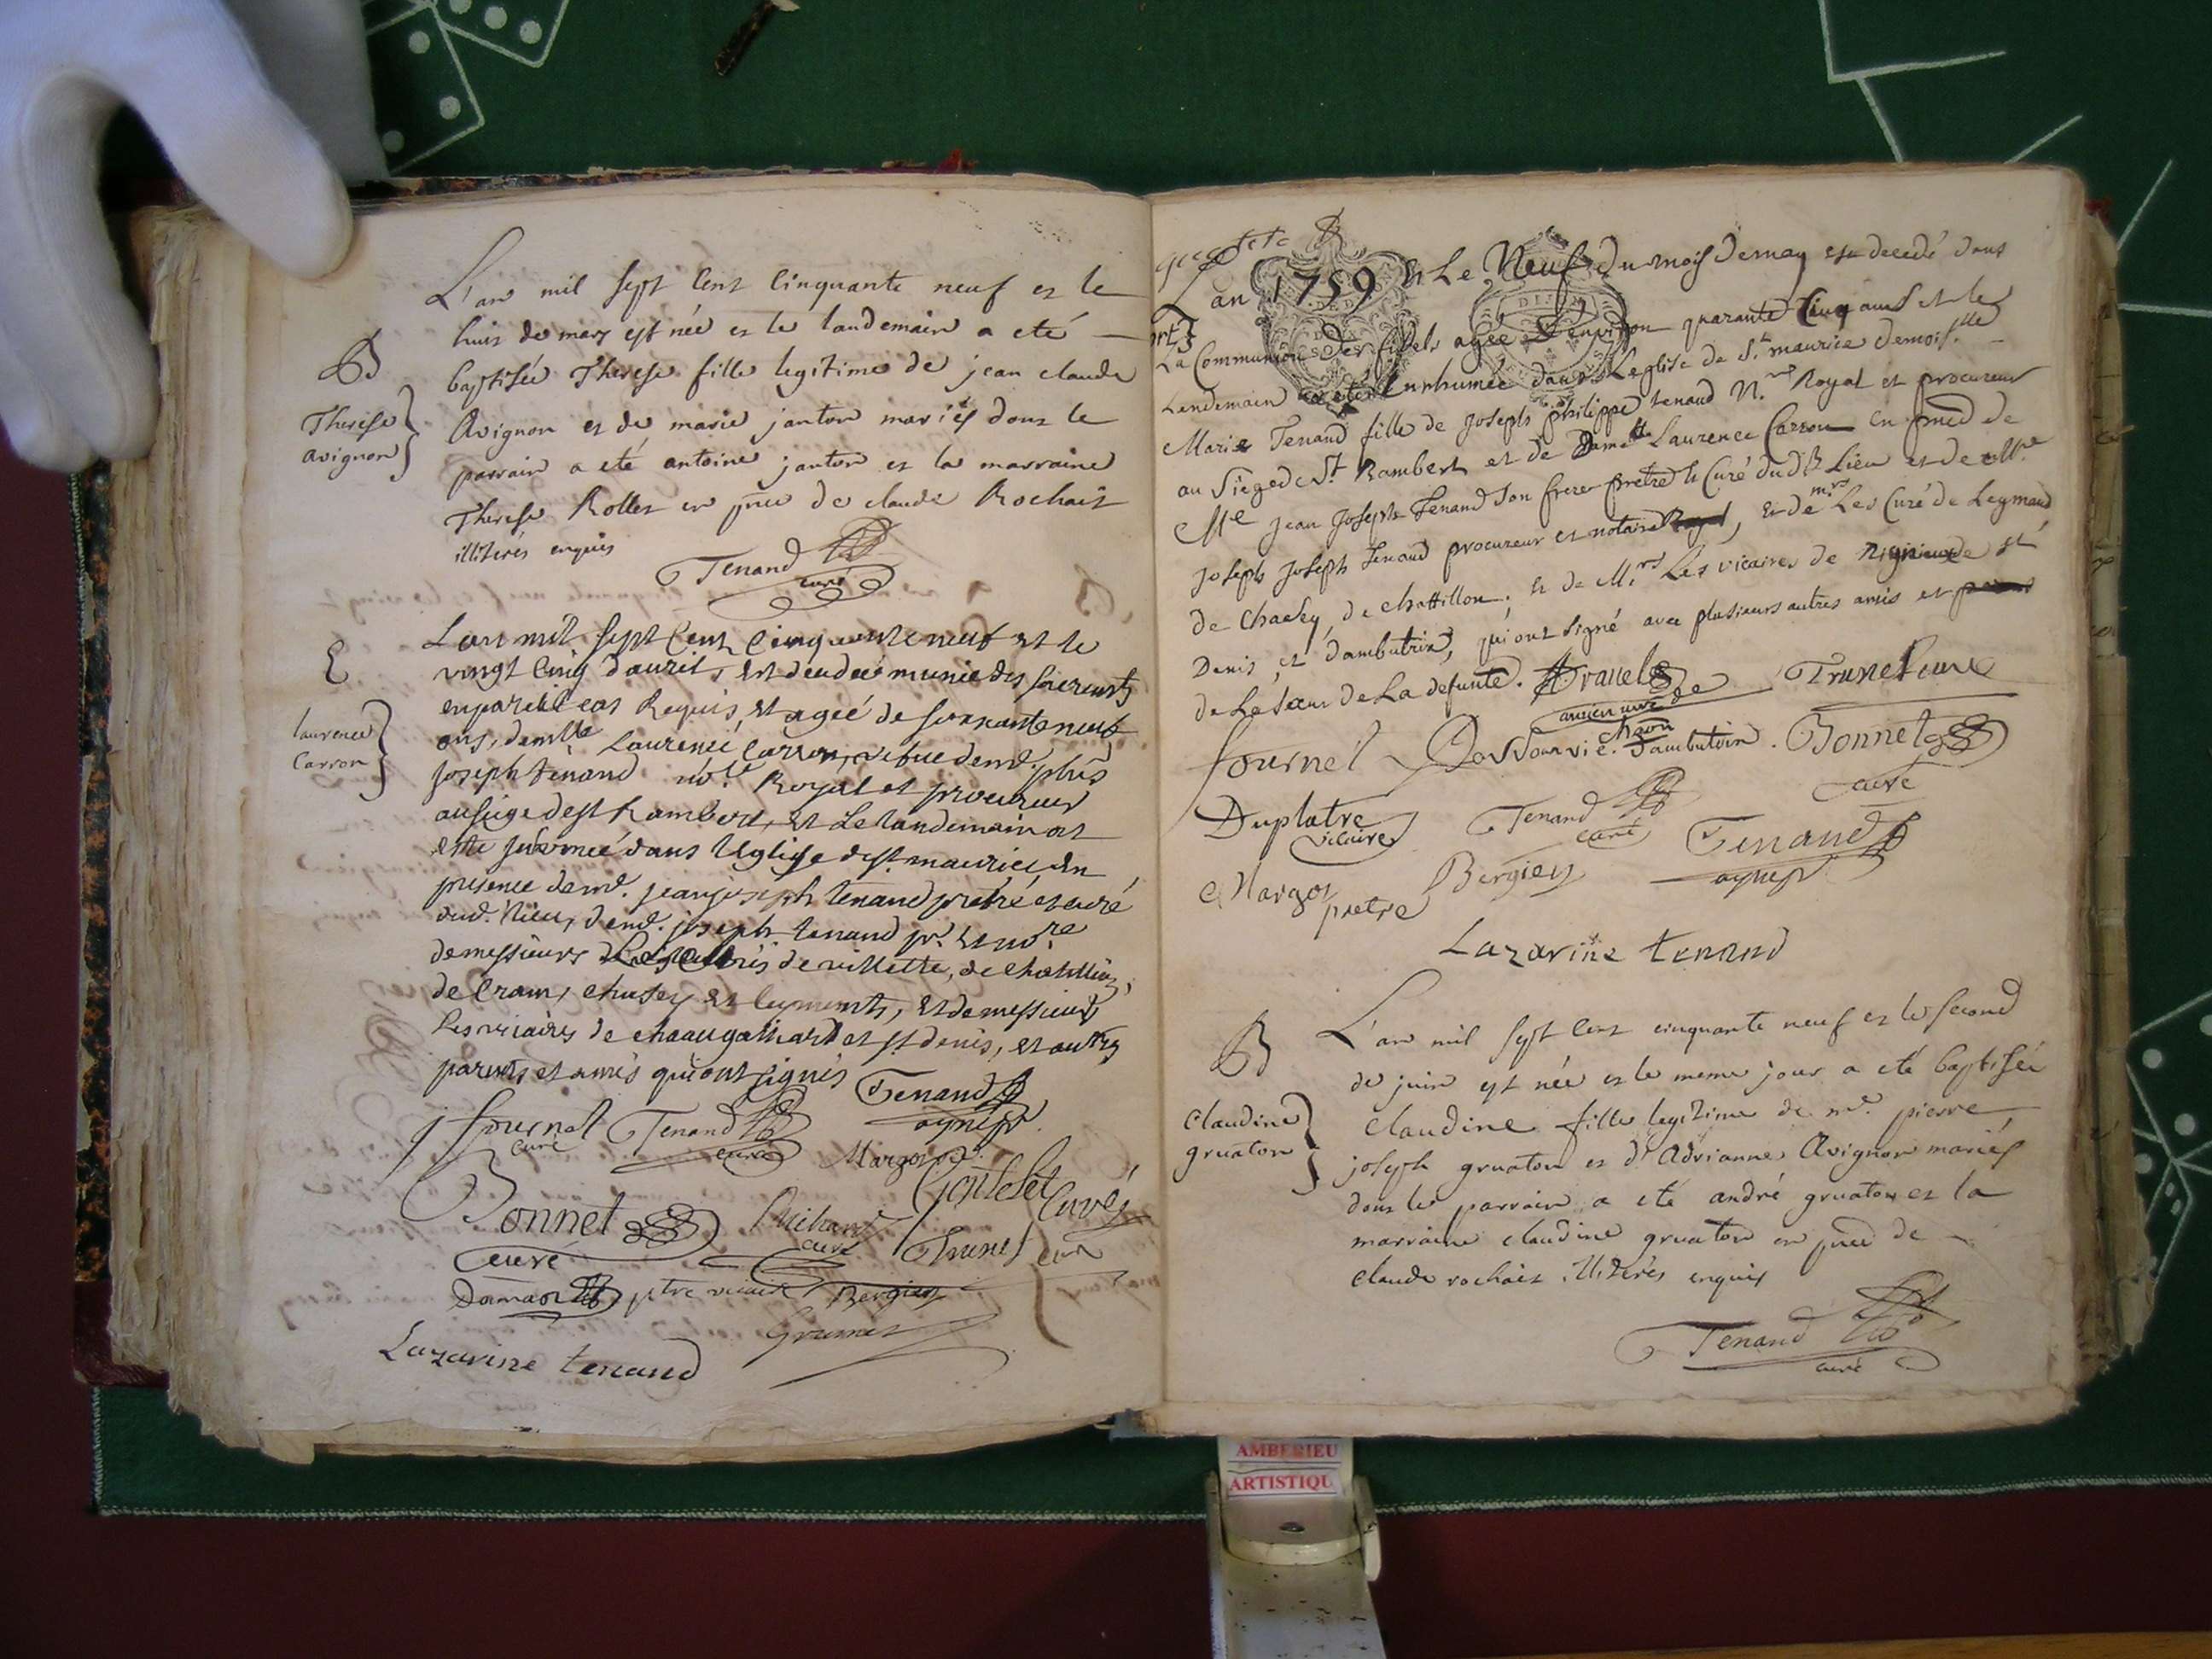 L'an mil sept cent cinquante neuf et le
huit de mars est née et le landemain a eté
B
baptisée Therese fille legitime de jean claude
Therese
avignon
Avignon et de marie janton mariés dont le
parrain a eté antoine janton et la marraine
Therese Rollet en pnce de claude Rochait
illiterés enquis
Tenand
curé
E
L'an mil sept cent cinquante neuf et le
vingt cinq d'auril, est decedée munie des sacrements
en pareil cas Requis, et agée de soixante neuf
laurence
Carron
ans, demlle Laurence Carron, vefue de md. phis
joseph tenand no.re Royal et procureur
au siege de st Rambert, et Le landemain at
esté inhumeé dans l'eglise de st. maurice, en
presence de md. jean joseph tenand pretre et curé
dud. lieu, de md. joseph tenand pr. et no.re
de messieurs Les Curés de villette, de chatillion,
de Cran, chasey et leyments, et de messieurs
Les vicaires de chaugaillard et st denis, et autres
parents et amis qui ont signés
j fournel
curé
Tenand
curé
Tenand
ayné pr
Margot
Gonselet
Curé
Bonnet
curé
Michard
curé
Trunel
curé
ptre vicaire
Bergier
Lazarine tenand
L'an 1759 & Le Neuf du mois de may est decedé dans
La Communion des fidels agée d'environ quarante Cinq ans et le
Lendemain a été Enrhumée dans L'eglise de St. maurice demois.lle
Marie Tenand fille de Joseph philippe tenand N.re Royal et procureur
au Siege de St Rambert et de Damlle Laurence Carron en pnce de
Mre Jean Joseph Tenand Son frere pretre & Curé dudt Lieu et de Mre
Joseph Joseph Tenand procureur et notaire Royal, et de mrs Les Curé de Leymand
de Chacey, de chattillon, & de M.rs Les vicaires de Rignieu de st
Denis, et d'ambutrix, qui ont signé avec plusieurs autres amis et
de La soeur de La defunte.
Travel
ancien curé de
chaon
Trunel Curé
fournel
vic. d'ambutrin
Bonnet
curé
Duplatre
vicaire
Tenand
curé
Tenand
ayné pr
Margot
pretre
Bergier
Lazarine tenand
B
L'an mil sept cent cinquante neuf et le second
de juin est née et le meme jour a eté baptisée
Claudine
gruaton
Claudine fille legitime de md. pierre
joseph gruaton et de Adrianne Avignon mariés
dont le parrain a eté andré gruaton et la
marraine claudine gruaton en pnce de
Claude rochait illiterés enquis
Tenand
curé
AMBERIEU
ARTISTIQU